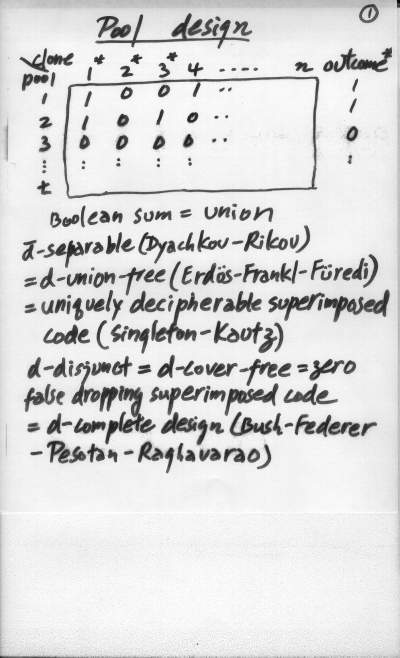 ①
Pool design
clone
pool 1* 2* 3* 4 ..... n outcome*
1 1 0 0 1 .. 1
2 1 0 1 0 .. 1
3 0 0 0 0 .. 0
: : : : : :
t
Boolean sum = union
d̄-separable (Dyachkov-Rikov)
= d-union-free (Erdös-Frankl-Füredi)
= uniquely decipherable superimposed
code (Singleton-Kautz)
d-disjunct = d-cover-free = zero
false dropping superimposed code
= d-complete design (Bush-Federer
-Pesotan-Raghavarao)